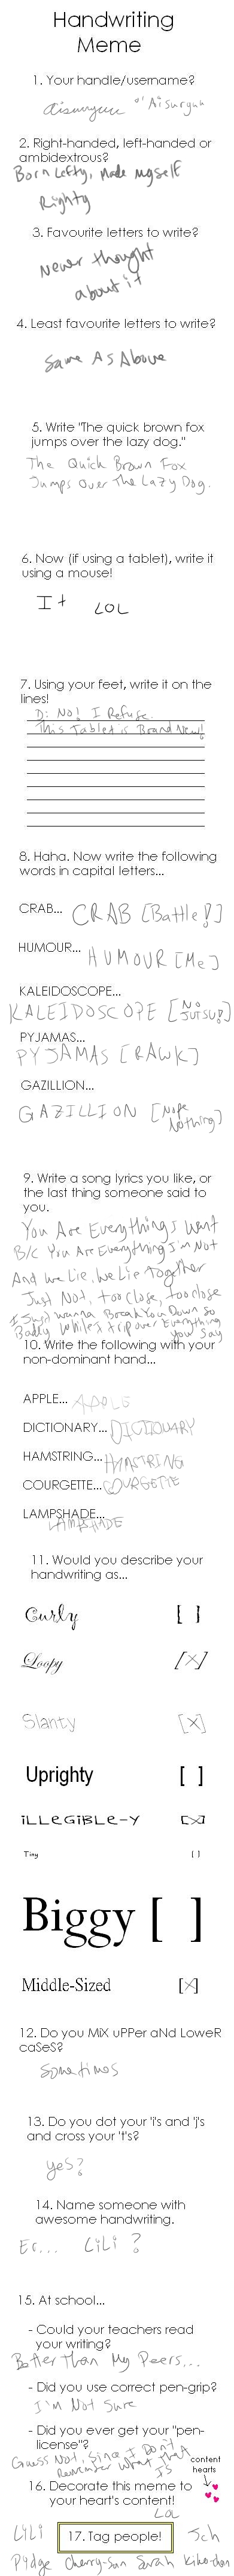 Handwriting
Meme
1. Your handle/username?
aisuryuu or Aisuryuu
2. Right-handed, left-handed or
ambidextrous?
Born Lefty, Made myself
Righty
3. Favourite letters to write?
Never thought
about it
4. Least favourite letters to write?
Same As Above
5. Write "The quick brown fox
jumps over the lazy dog."
The Quick Brown Fox
Jumps Over The Lazy Dog.
6. Now (if using a tablet), write it
using a mouse!
It LOL
7. Using your feet, write it on the
lines!
D: No! I Refuse.
This Tablet is Brand New!
8. Haha. Now write the following
words in capital letters...
CRAB... CRAB [Battle!]
HUMOUR... HUMOUR [Me]
KALEIDOSCOPE...
KALEIDOSCOPE [No JUTSU!]
PYJAMAS...
PYJAMAS [RAWK]
GAZILLION...
GAZILLION [Nope Nothing]
9. Write a song lyrics you like, or
the last thing someone said to
you.
You Are Everything I Want
B/c You Are Everything I'm Not
And we Lie, We Lie Together
Just Not, too close, too close
I Just wanna Break You Down so
Badly While I trip over Everything
you say
10. Write the following with your
non-dominant hand...
APPLE... APPLE
DICTIONARY... DICTIONARY
HAMSTRING... HAMSTRING
COURGETTE... COURGETTE
LAMPSHADE...
LAMPSHADE
11. Would you describe your
handwriting as...
Curly [ ]
Loopy [X]
Slanty [X]
Uprighty [ ]
iLLeGiBLe-Y [X]
Tiny [ ]
Biggy [ ]
Middle-Sized [X]
12. Do you MiX uPPer aNd LoweR
caSeS?
Sometimes
13. Do you dot your 'i's and 'j's
and cross your 't's?
yes?
14. Name someone with
awesome handwriting.
Er... LiLi ?
15. At school...
- Could your teachers read
your writing?
Better Than My Peers...
- Did you use correct pen-grip?
I'm Not Sure
- Did you ever get your "pen-
license"?
Guess Not, Since I Don't
Remember What That
Is
content
hearts
16. Decorate this meme to
your heart's content!
LOL
17. Tag people!
LiLi Jch
Pydge Cherry-Sun Sarah Kiko-chan